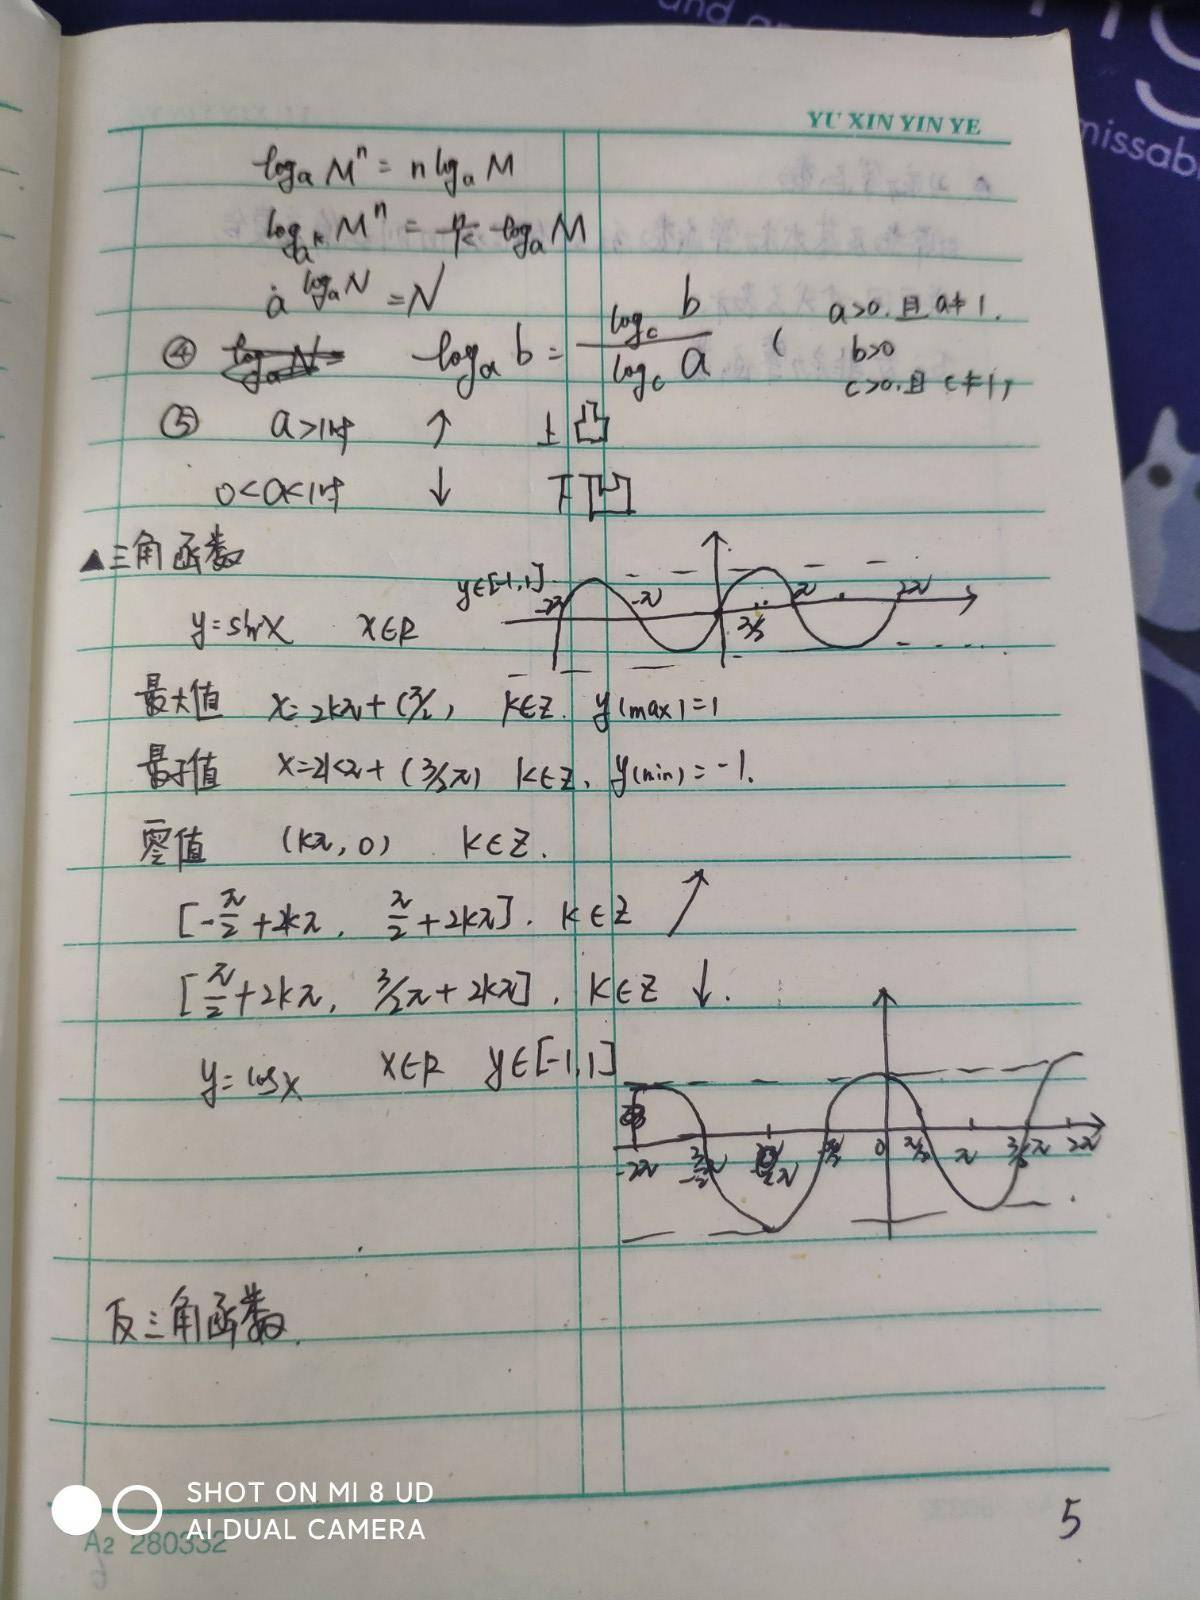 and
missabl
YU XIN YIN YE
logₐ Mⁿ = n logₐ M
log_{aᵏ} Mⁿ = n/k logₐ M
a^{logₐ N} = N
④ logₐ b = log_c b / log_c a ( a>0.且 a≠1.
b>0
c>0.且 c≠1)
⑤ a>1时 ↑ 上凸
0<a<1时 ↓ 下凹
▲三角函数
y∈[-1,1] -2π -π π/2 π 2π
y=sinx x∈R
最大值 x=2kπ+(π/2) k∈Z. y(max)=1
最小值 x=2kπ+(3/2π) k∈Z. y(min)=-1.
零值 (kπ,0) k∈Z.
[-π/2+2kπ, π/2+2kπ]. k∈Z ↗
[π/2+2kπ, 3/2π+2kπ]. k∈Z ↓.
y=cosx x∈R y∈[-1,1]
-2π -3/2π -π/2 0 π/2 π 3/2π 2π
反三角函数.
SHOT ON MI 8 UD
AI DUAL CAMERA
A2 280332
5